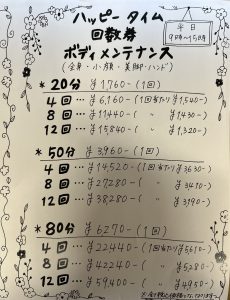 ハッピータイム
回数券
ボディメンテナンス
(全身・小顔・美脚・ハンド)
平日
9時〜15時
*20分 ¥1760-(1回)
4回… ¥6,160-(1回当たり¥1,540-)
8回… ¥11440-( 〃 ¥1,430-)
12回… ¥15,840-( 〃 ¥1,320-)
*50分 ¥3,960-(1回)
4回… ¥14,520-(1回当たり¥3630-)
8回… ¥27,280-( 〃 ¥3410-)
12回… ¥38,280-( 〃 ¥3190-)
*80分 ¥6270-(1回)
4回… ¥22440-(1回当たり¥5,610-)
8回… ¥42240-( 〃 ¥5280-)
12回… ¥59,400-( 〃 ¥4950-)